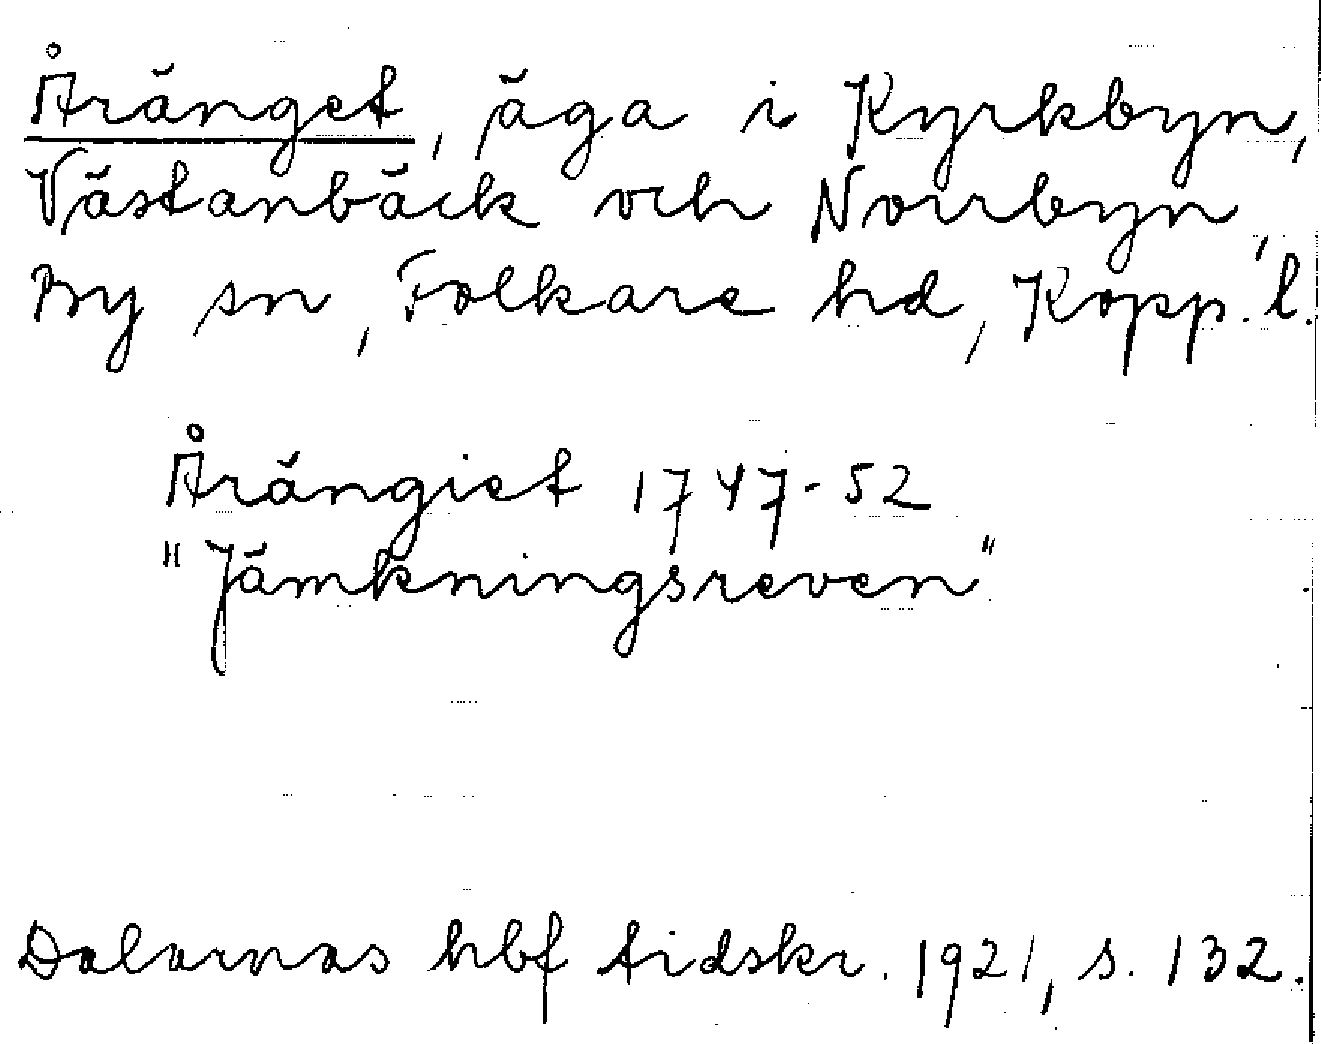 Åränget, äga i Kyrkbyn,
Västanbäck och Norrbyn,
By sn, Folkare hd, Kopp. l.
Årängiet 1747-52
"Jämkningsreven"
Dalarnas hbf tidskr. 1921, s. 132.